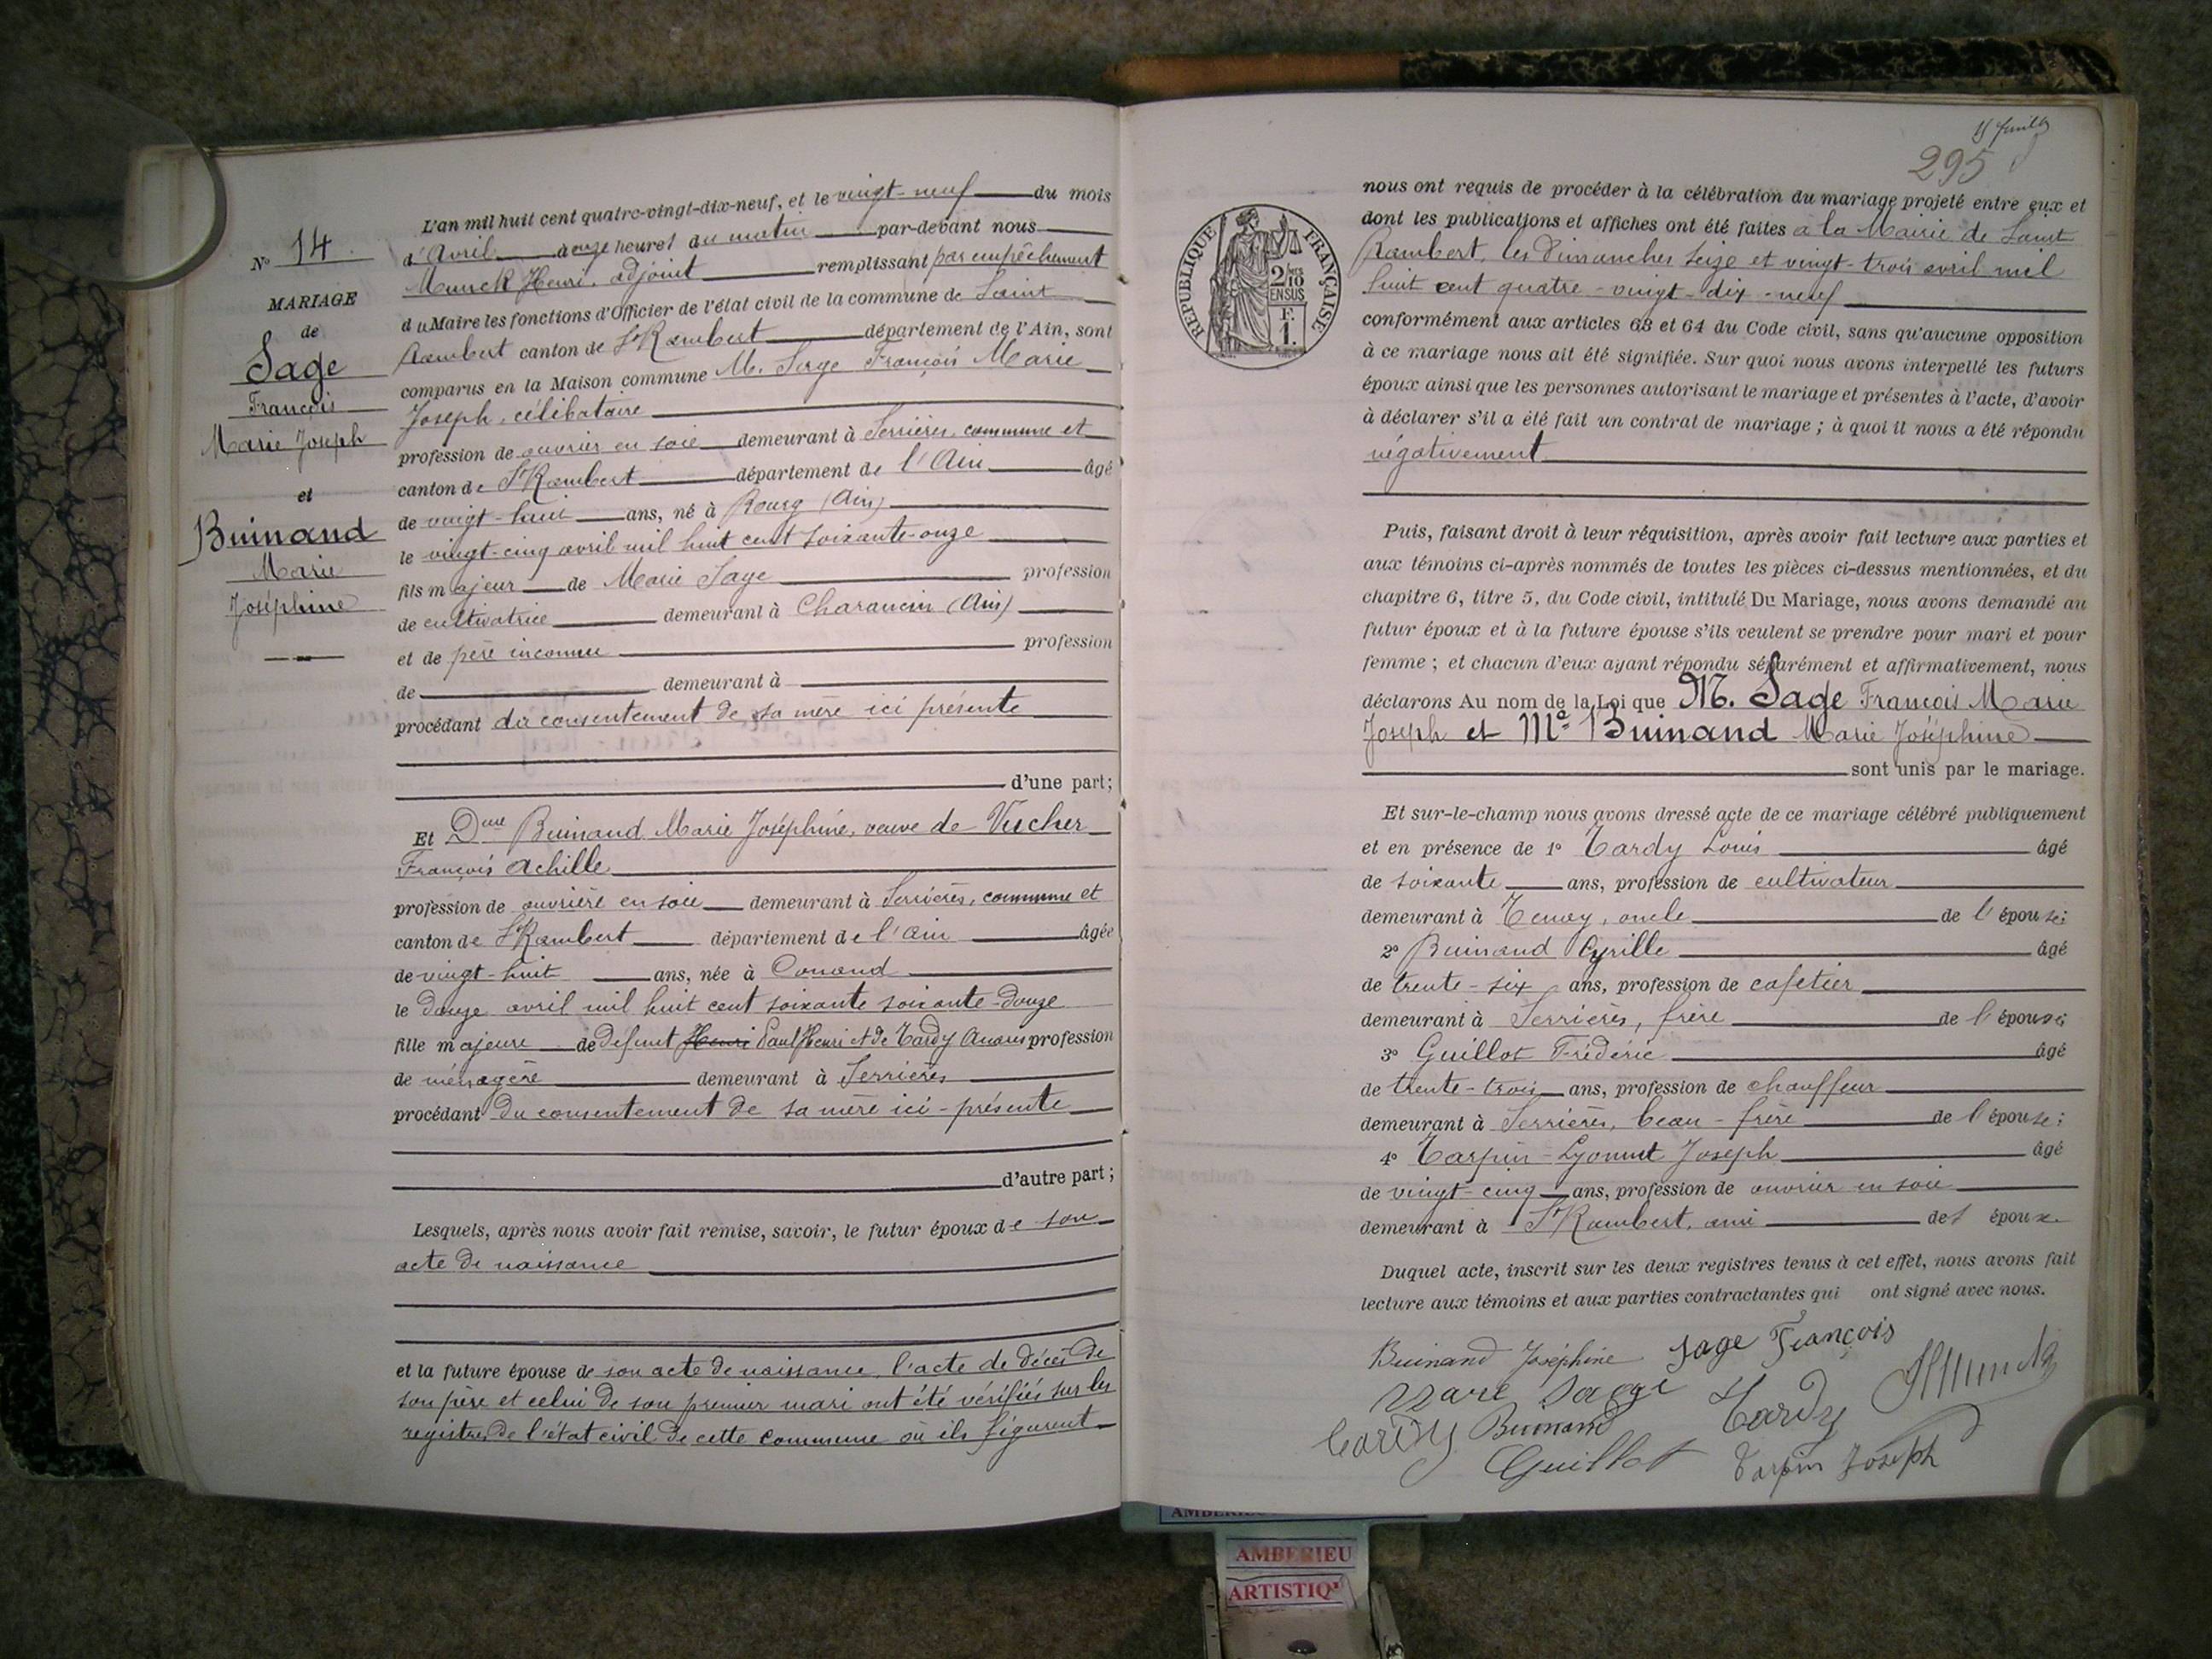 N° 14
MARIAGE
de
Sage
François
Marie Joseph
et
Buinand
Marie
Joséphine
L'an mil huit cent quatre-vingt-dix-neuf, et le vingt-neuf du mois
d'Avril à onze heures du matin par-devant nous
Munck Henri, adjoint remplissant par empêchement
du Maire les fonctions d'Officier de l'état civil de la commune de Saint
Rambert canton de St Rambert département de l'Ain, sont
comparus en la Maison commune M. Sage François Marie
Joseph, célibataire
profession de ouvrier en soie demeurant à Serrières, commune et
canton de St Rambert département de l'Ain âgé
de vingt-huit ans, né à Bourg (Ain)
le vingt-cinq avril mil huit cent soixante-onze
fils majeur de Marie Sage profession
de cultivatrice demeurant à Charancin (Ain)
et de père inconnu profession
de demeurant à
procédant du consentement de sa mère ici présente
d'une part;
Et Dme Buinand Marie Joséphine, veuve de Vucher
François Achille
profession de ouvrière en soie demeurant à Serrières, commune et
canton de St Rambert département de l'Ain âgée
de vingt-huit ans, née à Conand
le douze avril mil huit cent soixante soixante-douze
fille majeure de défunt Henri Paul Henri et de Tardy profession
de ménagère demeurant à Serrières
procédant du consentement de sa mère ici-présente
d'autre part;
Lesquels, après nous avoir fait remise, savoir, le futur époux de son
acte de naissance
et la future épouse de son acte de naissance, l'acte de décès de
son père et celui de son premier mari ont été vérifiés sur les
registres de l'état civil de cette commune où ils figurent
295
RÉPUBLIQUE FRANÇAISE
2/10
EN SUS
F.
1.
nous ont requis de procéder à la célébration du mariage projeté entre eux et
dont les publications et affiches ont été faites à la Mairie de Saint
Rambert, les Dimanches seize et vingt-trois avril mil
huit cent quatre-vingt-dix-neuf
conformément aux articles 63 et 64 du Code civil, sans qu'aucune opposition
à ce mariage nous ait été signifiée. Sur quoi nous avons interpellé les futurs
époux ainsi que les personnes autorisant le mariage et présentes à l'acte, d'avoir
à déclarer s'il a été fait un contrat de mariage; à quoi il nous a été répondu
négativement
Puis, faisant droit à leur réquisition, après avoir fait lecture aux parties et
aux témoins ci-après nommés de toutes les pièces ci-dessus mentionnées, et du
chapitre 6, titre 5, du Code civil, intitulé Du Mariage, nous avons demandé au
futur époux et à la future épouse s'ils veulent se prendre pour mari et pour
femme; et chacun d'eux ayant répondu séparément et affirmativement, nous
déclarons Au nom de la Loi que M. Sage François Marie
Joseph et Me Buinand Marie Joséphine
sont unis par le mariage.
Et sur-le-champ nous avons dressé acte de ce mariage célébré publiquement
et en présence de 1° Tardy Louis âgé
de soixante ans, profession de cultivateur
demeurant à Tenay, oncle de l'épouse;
2° Buinand Cyrille âgé
de trente-six ans, profession de cafetier
demeurant à Serrières, frère de l'épouse;
3° Guillot Frédéric âgé
de trente-trois ans, profession de chauffeur
demeurant à Serrières, beau-frère de l'épouse;
4° Tarpin-Lyonnet Joseph âgé
de vingt-cinq ans, profession de ouvrier en soie
demeurant à St Rambert, ami des époux.
Duquel acte, inscrit sur les deux registres tenus à cet effet, nous avons fait
lecture aux témoins et aux parties contractantes qui ont signé avec nous.
Buinand Joséphine Sage François
Tardy
Tardy Buinand
Guillot Tarpin Joseph
AMBERIEU
ARTISTIQ